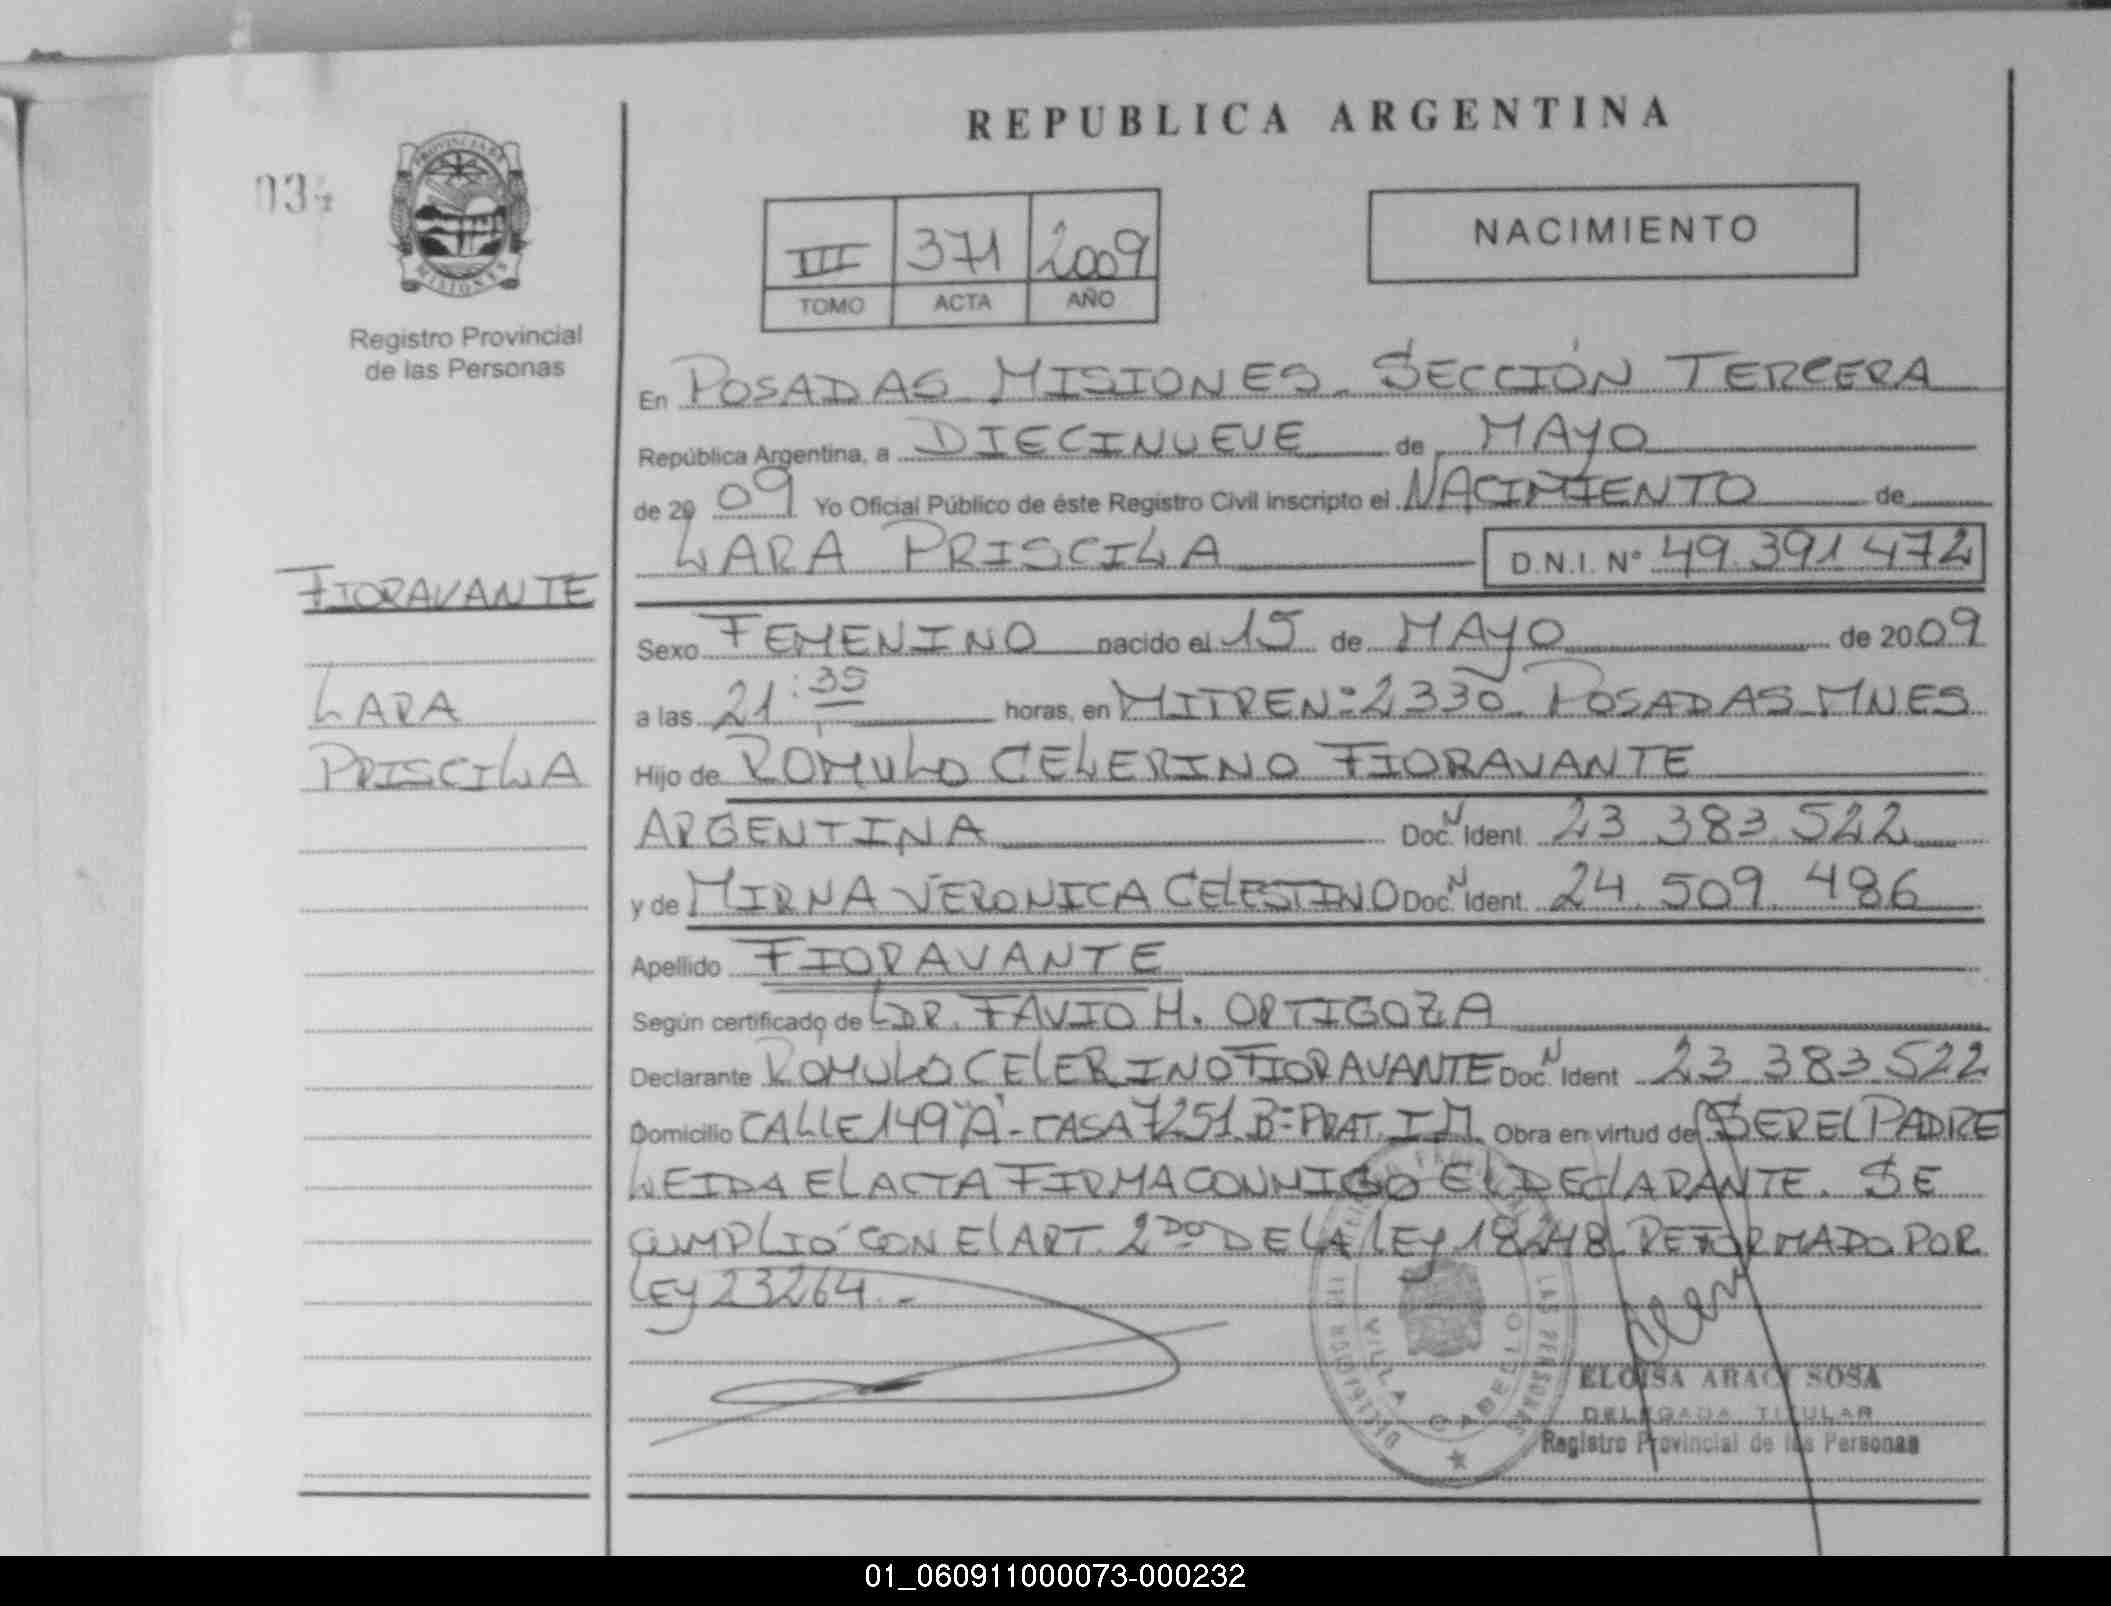 REPUBLICA ARGENTINA
PROVINCIA DE
MISIONES
Registro Provincial
de las Personas
III 371 2009
TOMO ACTA AÑO
NACIMIENTO
En POSADAS MISIONES. SECCIÓN TERCERA
República Argentina, a DIECINUEVE de MAYO
de 20 09 Yo Oficial Público de éste Registro Civil inscripto el NACIMIENTO de
LARA PRISCILA D.N.I. Nº 49.391 472
FIORAVANTE
LARA
PRISCILA
Sexo FEMENINO nacido el 15 de MAYO de 20 09
a las 21:35 horas, en MITRE Nº 2330 POSADAS MNES
Hijo de ROMULO CELERINO FIORAVANTE
ARGENTINA Doc. N Ident. 23 383 522
y de MIRNA VERONICA CELESTINO Doc. N Ident. 24 509 486
Apellido FIORAVANTE
Según certificado de LDR. FAVIO H. ORTIGOZA
Declarante ROMULO CELERINO FIORAVANTE Doc. N Ident 23 383 522
Domicilio CALLE 149 "A" - CASA 7251 Bº PRAT. I M. Obra en virtud de SER EL PADRE
LEIDA EL ACTA FIRMA CONMIGO EL DECLARANTE. SE
CUMPLIÓ CON EL ART. 2DO DE LA LEY 18248 REFORMADO POR
LEY 23264.-
VILLA CABELLO
LAS PERSONAS
ELOISA ARACI SOSA
DELEGADA TITULAR
Registro Provincial de las Personas
01_060911000073-000232